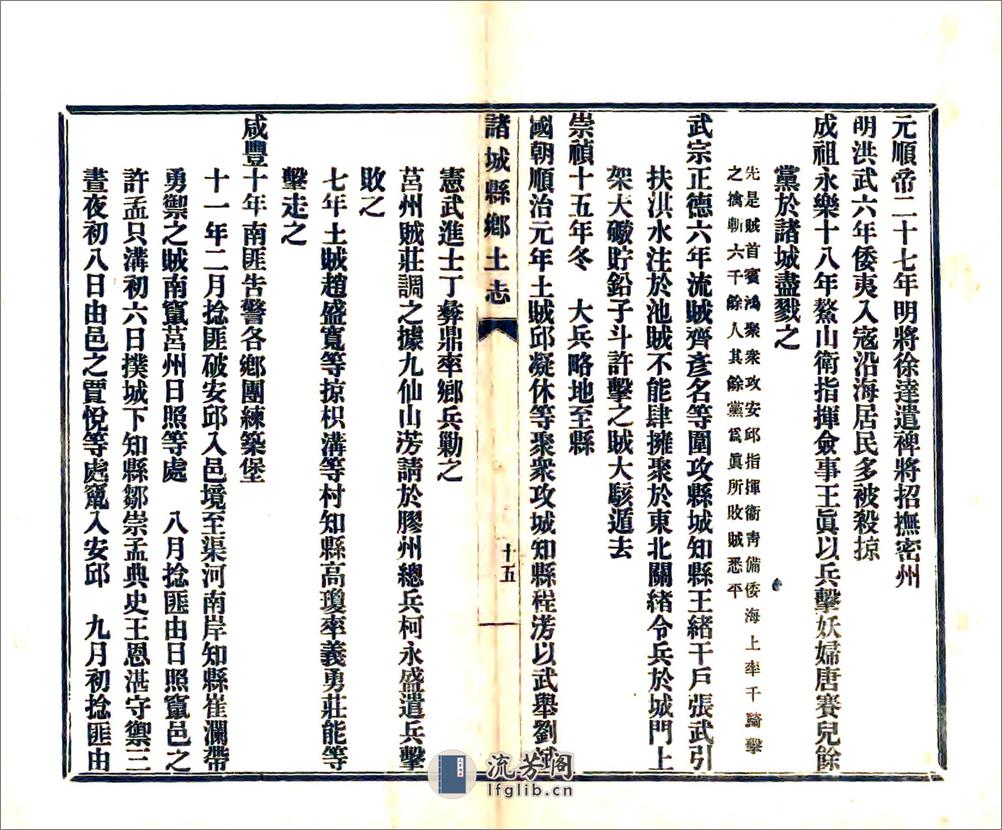 元順帝二十七年明將徐達遣裨將招撫密州
明洪武六年倭夷入寇沿海居民多被殺掠
成祖永樂十八年鰲山衛指揮僉事王眞以兵擊妖婦唐賽兒餘
黨於諸城盡戮之
先是賊首賓鴻衆衆攻安邱指揮衞靑備倭海上率千騎擊
之擒斬六千餘人其餘黨爲眞所敗賊悉平
武宗正德六年流賊齊彥名等圍攻縣城知縣王緒千戶張武引
扶淇水注於池賊不能肆擁聚於東北關緒令兵於城門上
架大礮貯鉛子斗許擊之賊大駭遁去
崇禎十五年冬 大兵略地至縣
國朝順治元年土賊邱凝休等聚衆攻城知縣程淓以武舉劉
諸城縣鄕土志
十五
憲武進士丁彝鼎率鄕兵勦之
莒州賊莊調之據九仙山淓請於膠州總兵柯永盛遣兵擊
敗之
七年土賊趙盛寬等掠枳溝等村知縣高瓊率義勇莊能等
擊走之
咸豐十年南匪告警各鄕團練築堡
十一年二月捻匪破安邱入邑境至渠河南岸知縣崔瀾帶
勇禦之賊南竄莒州日照等處 八月捻匪由日照竄邑之
許孟只溝初六日撲城下知縣鄒崇孟典史王恩湛守禦三
晝夜初八日由邑之賈悅等處竄入安邱 九月初捻匪由
流芳閣
lfglib.cn